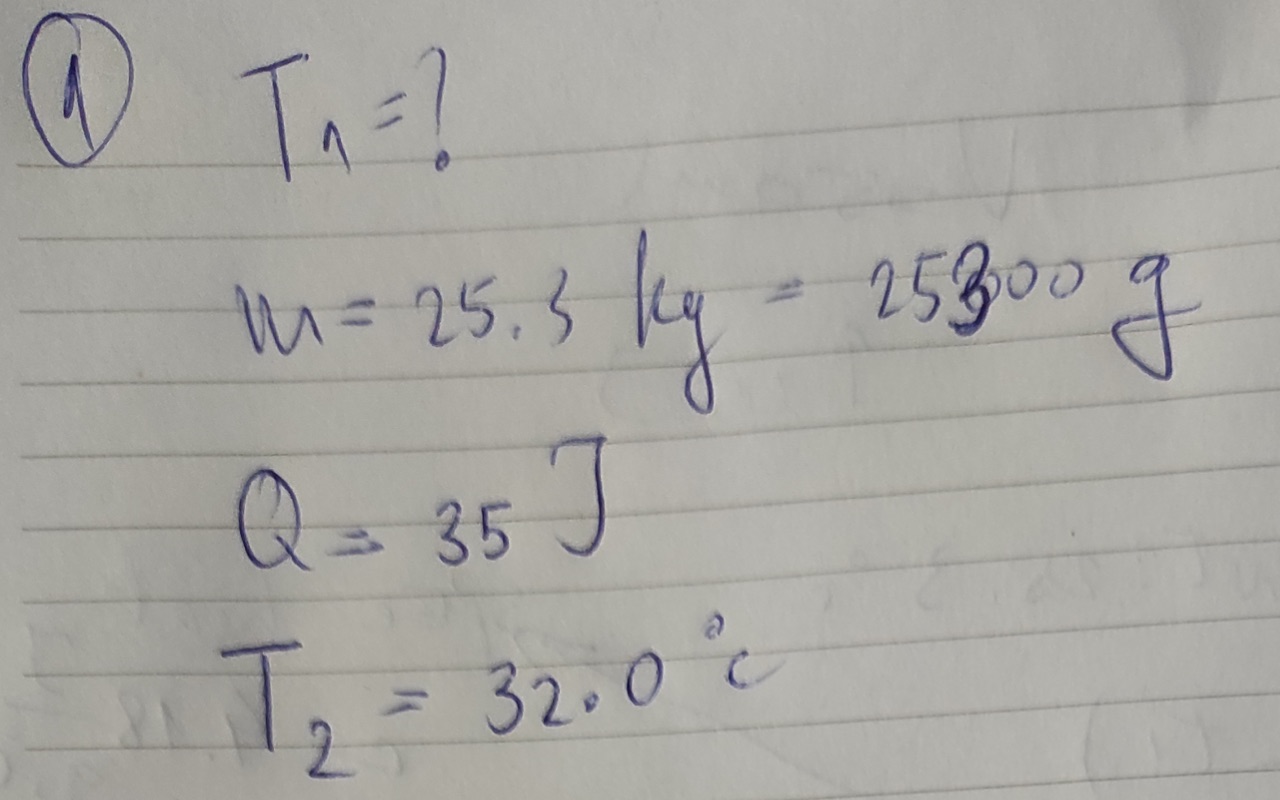 1 T₁ = ?
m = 25.3 kg = 25300 g
Q = 35 J
T₂ = 32.0 °c